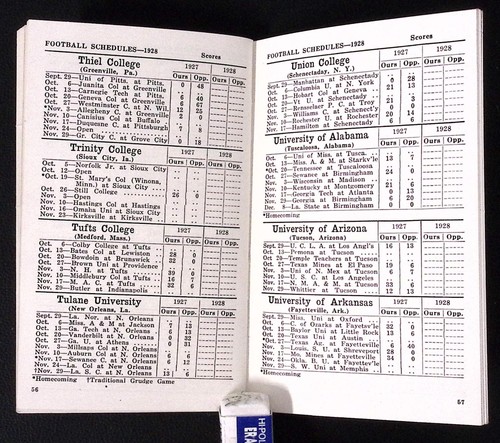 FOOTBALL SCHEDULES—1928
Scores
Thiel College
(Greenville, Pa.)
1927 1928
Ours Opp. Ours Opp.
Sept. 29—Uni of Pitts. at Pitts.
Oct. 6—Juanita Col at Greenville 0 48
Oct. 13—Carnegie Tech at Pitts.
Oct. 20—Geneva Col at Greenville 6 40
Oct. 27—Westminster C. at N. Wil. 6 67
*Nov. 3—Allegheny C. at Greenville 12 25
Nov. 10—Canisius Col at Buffalo 2 0
Nov. 17—Duquesne C. at Pittsburgh
Nov. 24—Open 7 8
Nov. 29—Gr. City C. at Grove City 0 18
Trinity College
(Sioux City, Ia.)
1927 1928
Ours Opp. Ours Opp.
Oct. 5—Norfolk Jr. at Sioux City
Oct. 12—Open
*Oct. 19—St. Mary's Col (Winona,
Minn.) at Sioux City
Oct. 26—Still College 26 0
Nov. 2—Open
Nov. 10—Hastings Col at Hastings
Nov. 16—Omaha Uni at Sioux City
Nov. 23—Kirksville at Kirksville
Tufts College
(Medford, Mass.)
1927 1928
Ours Opp. Ours Opp.
Oct. 6—Colby College at Tufts
Oct. 13—Bates Col at Lewiston 28 0
Oct. 20—Bowdoin at Brunswick 32 0
Oct. 27—Brown Uni at Providence
Nov. 3—N. H. at Tufts 39 0
Nov. 10—Middlebury Col at Tufts 16 7
Nov. 17—M. A. C. at Tufts 32 6
Nov. 29—Butler at Indianapolis
Tulane University
(New Orleans, La.)
1927 1928
Ours Opp. Ours Opp.
Sept. 29—La. Nor. at N. Orleans
Oct. 6—Miss. A & M at Jackson 7 13
Oct. 13—Ga. Tech at N. Orleans 6 13
Oct. 20—Vanderbilt at N. Orleans 0 32
Oct. 27—Ga. U. at Athens 0 31
Nov. 3—Millsaps Col at N. Orleans
Nov. 10—Auburn Col at N. Orleans 6 6
*Nov. 17—Sewanee C. at N. Orleans 6 12
Nov. 24—La. Col at New Orleans
†Nov. 29—La. S. C. at N. Orleans 13 6
*Homecoming †Traditional Grudge Game
56
FOOTBALL SCHEDULES—1928
Scores
Union College
(Schenectady, N. Y.)
1927 1928
Ours Opp. Ours Opp.
Sept. 29—Manhattan at Schenectady
Oct. 6—Columbia U. at N. York 0 28
Oct. 13—Hobart Col at Geneva 21 13
Oct. 20—Vt U. at Schenectady
Oct. 27—Rensselaer P. C. at Troy 21 3
Nov. 3—Williams C. at Schenect'y 0
Nov. 10—Rochester U. at Rochester 20 14
Nov. 17—Hamilton at Schenectady 6 6
University of Alabama
(Tuscaloosa, Alabama)
1927 1928
Ours Opp. Ours Opp.
Oct. 6—Uni of Miss. at Tusca.
Oct. 13—Miss. A. & M. at Starkv'le 13 7
*Oct. 20—Tennessee at Tuscaloosa
Oct. 27—Sewanee at Birmingham 24 0
Nov. 3—Wisconsin at Madison
Nov. 10—Kentucky at Montgomery 21 6
Nov. 17—Georgia Tech at Atlanta 0 13
Nov. 29—Georgia at Birmingham 6 20
Dec. 8—La. State at Birmingham 0 0
*Homecoming
University of Arizona
(Tucson, Arizona)
1927 1928
Ours Opp. Ours Opp.
Sept. 29—U. C. L. A. at Los Angl's 16 13
Oct. 13—Pomona at Tucson
Oct. 20—Temple Teachers at Tucson
Oct. 27—Texas Mines at El Paso 19 6
Nov. 3—Uni of N. Mex at Tucson 6 7
Nov. 10—U. S. C. at Los Angeles
Nov. 17—N. M. A. & M. at Tucson 33 6
Nov. 29—Whittier at Tucson 12 13
University of Arkansas
(Fayetteville, Ark.)
1927 1928
Ours Opp. Ours Opp.
Sept. 29—Miss. Uni at Oxford
Oct. 6—C. of Ozarks at Fayettev'le 32 0
Oct. 13—Baylor Uni at Little Rock 13 6
Oct. 20—Texas Uni at Austin
*Oct. 27—Texas Ag. at Fayetteville 6 40
Nov. 3—Louis. S. U. at Shreveport 28 0
Nov. 17—Mo. Mines at Fayetteville 34 0
Nov. 24—Okla. B. U. at Fayettev'le
Nov. 29—S. W. Uni at Memphis
*Homecoming
57
HI-POL
ERA